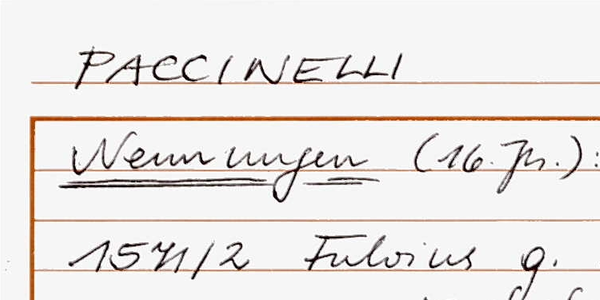 PACCINELLI
Nennungen (16. Jh.):
1571/2 Fulvius g.